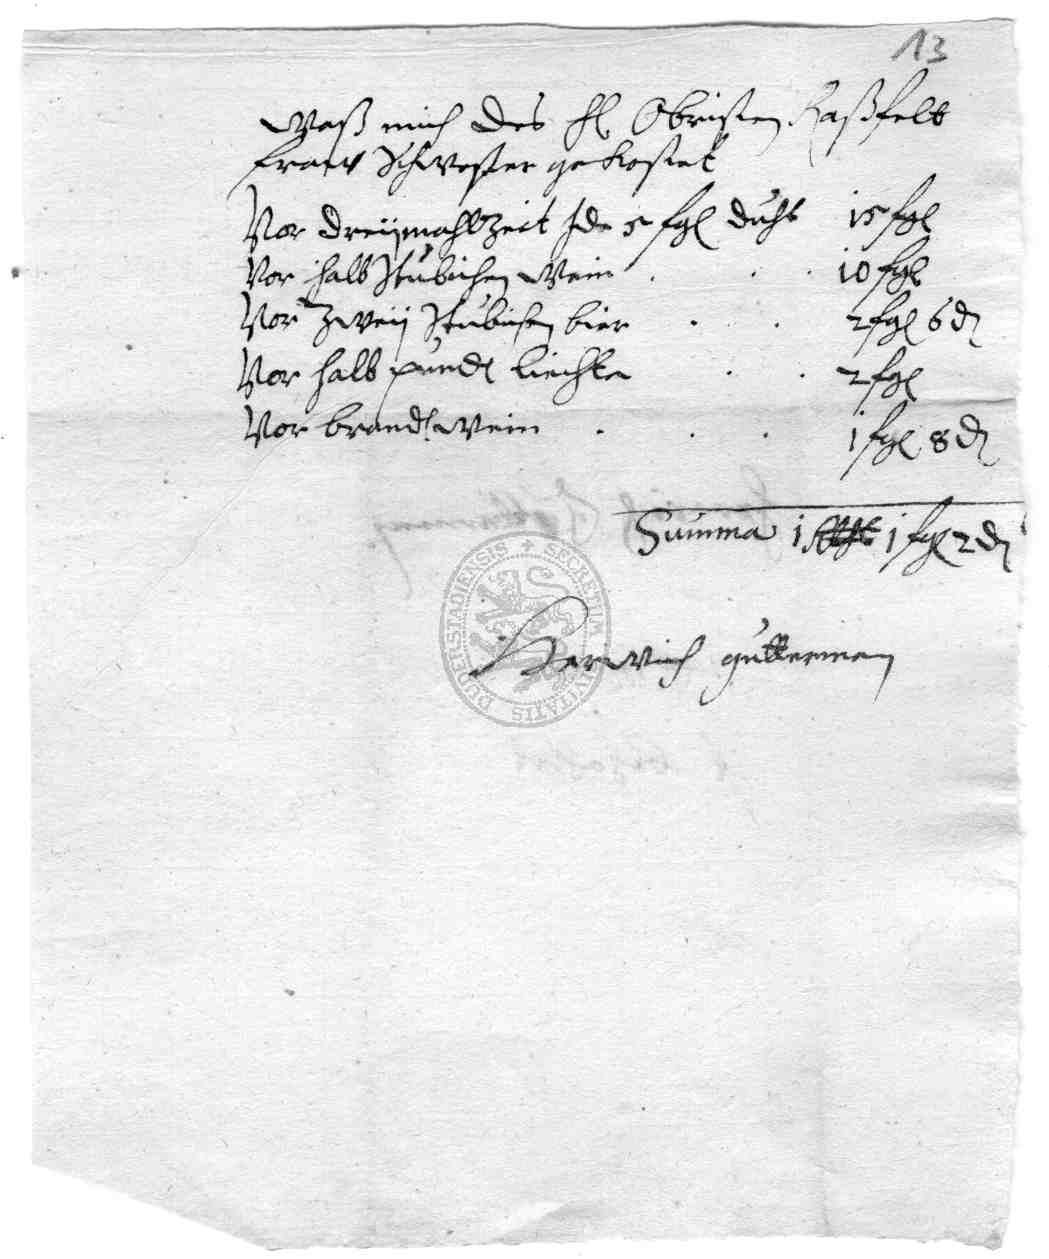 13
Waß mich des H. Obristen Raßfelt
fraw Schwester gekostet
Vor dreij mahlzeit Jde 5 fgl duht 15 fgl
Vor halb stubichen wein . . . 10 fgl
Vor Zweij stubichen bier . . . 2 fgl 6 d
Vor halb pundt liechte . . 2 fgl
Vor brandtwein . . . 1 fgl 8 d
Summa 1 1 fgl 2 d
SECRETUM CIVITATIS DUDERSTADIENSIS
Herwich